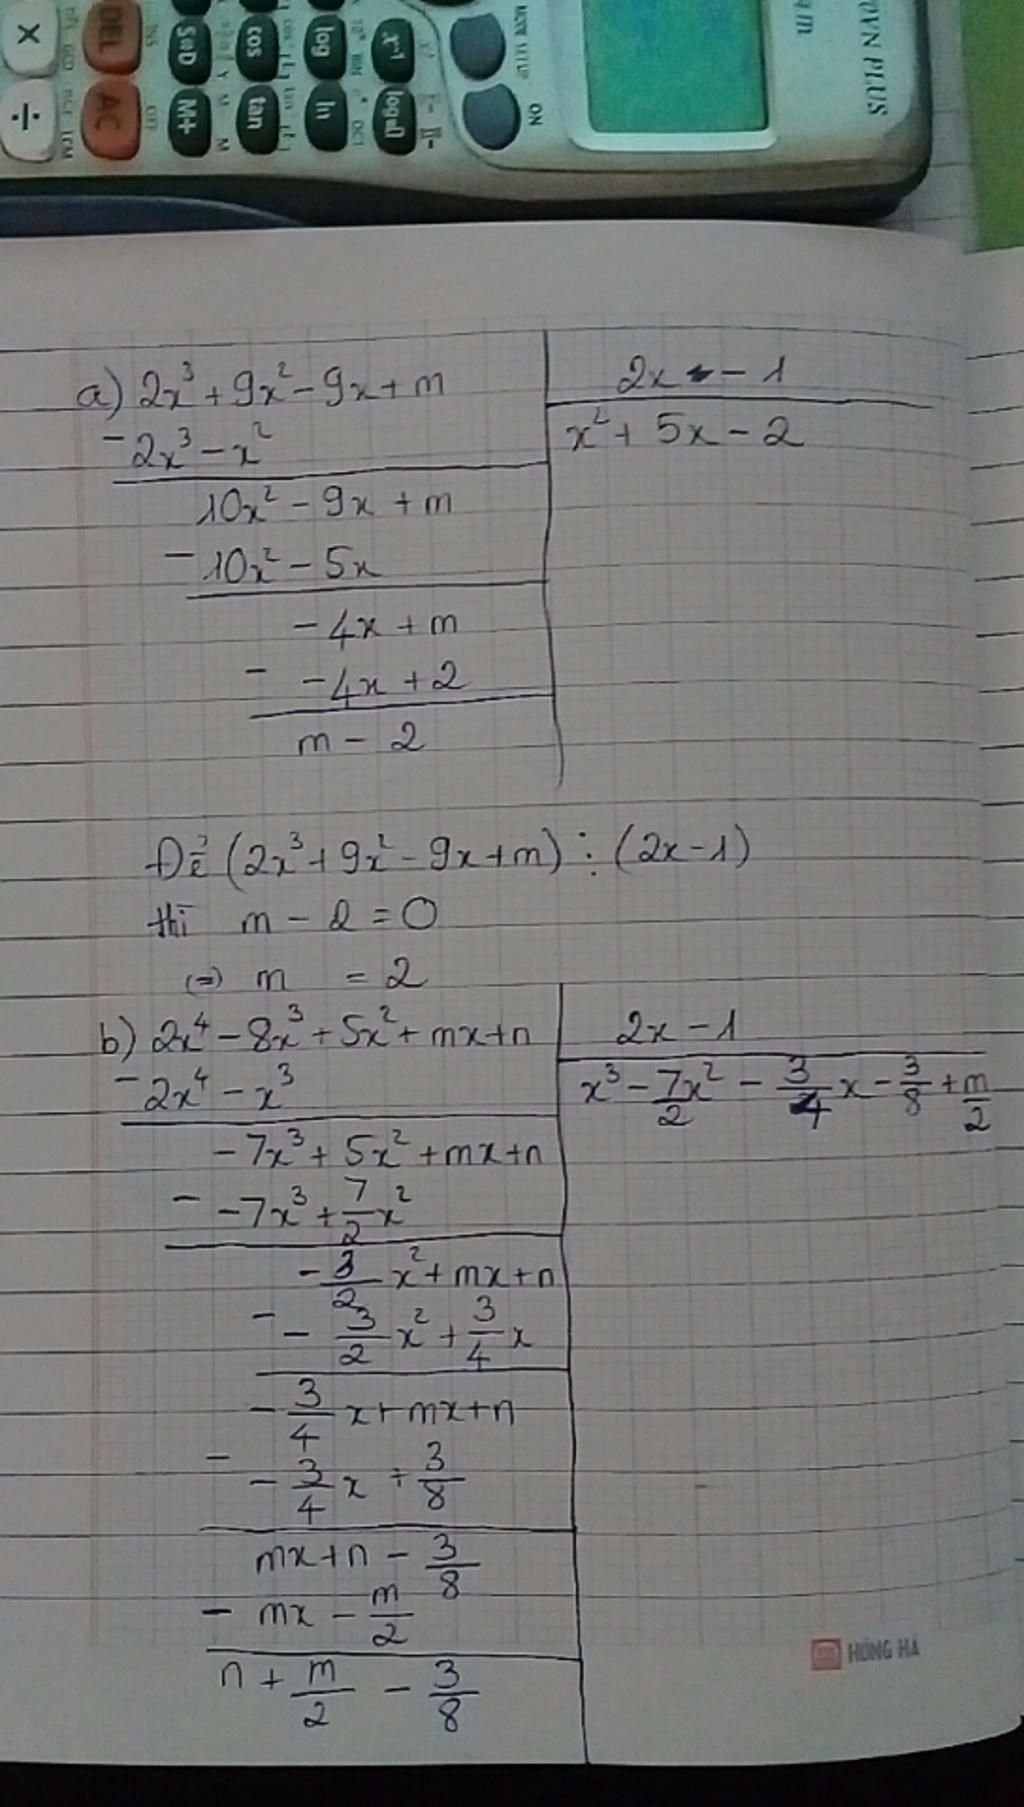 × DEL S⇔D cos log x⁻¹
÷ AC M+ tan ln log
MODE SETUP ON
VN PLUS
a) 2x³ + 9x² - 9x + m | 2x - 1
- 2x³ - x² | x² + 5x - 2
10x² - 9x + m
- 10x² - 5x
- 4x + m
- - 4x + 2
m - 2
Để (2x³ + 9x² - 9x + m) ⋮ (2x - 1)
thì m - 2 = 0
(=) m = 2
b) 2x⁴ - 8x³ + 5x² + mx + n | 2x - 1
- 2x⁴ - x³ | x³ - 7x²/2 - 3/4 x - 3/8 + m/2
- 7x³ + 5x² + mx + n
- - 7x³ + 7/2 x²
- 3/2 x² + mx + n
- - 3/2 x² + 3/4 x
- 3/4 x + mx + n
- - 3/4 x + 3/8
mx + n - 3/8
- mx - m/2
n + m/2 - 3/8
HỒNG HÀ